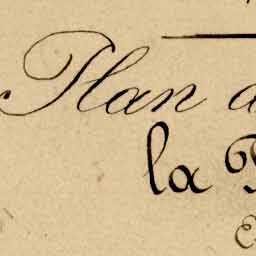 Plan d
la